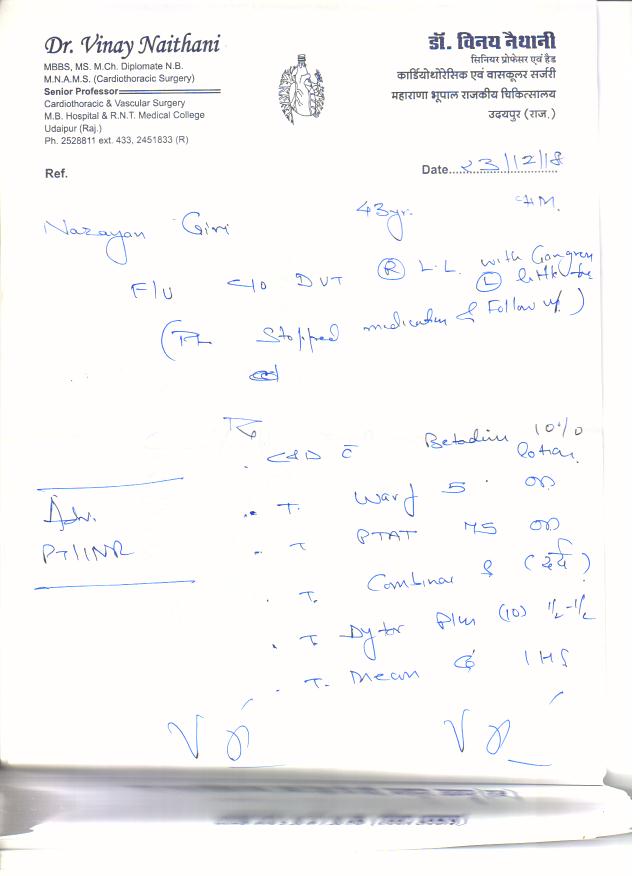 Dr. Vinay Naithani
MBBS, MS. M.Ch. Diplomate N.B.
M.N.A.M.S. (Cardiothoracic Surgery)
Senior Professor
Cardiothoracic & Vascular Surgery
M.B. Hospital & R.N.T. Medical College
Udaipur (Raj.)
Ph. 2528811 ext. 433, 2451833 (R)
डॉ. विनय नैथानी
सिनियर प्रोफेसर एवं हैड
कार्डियोथोरेसिक एवं वासकूलर सर्जरी
महाराणा भूपाल राजकीय चिकित्सालय
उदयपुर (राज.)
Ref.
Date 23/12/18
Narayan Giri 43yr.
F/U c/o DVT (R) L.L. with Gangren
(L) little toe
(Pt Stopped medication & Follow up)
Rx
C&D c̄ Betadine 10% lotion
Adv.
PT/INR
T. Warf 5 OD
T. PTAT 75 OD
T. (दर्द)
T. Dytor Plus (10) 1/2-1/2
T. 1 HS